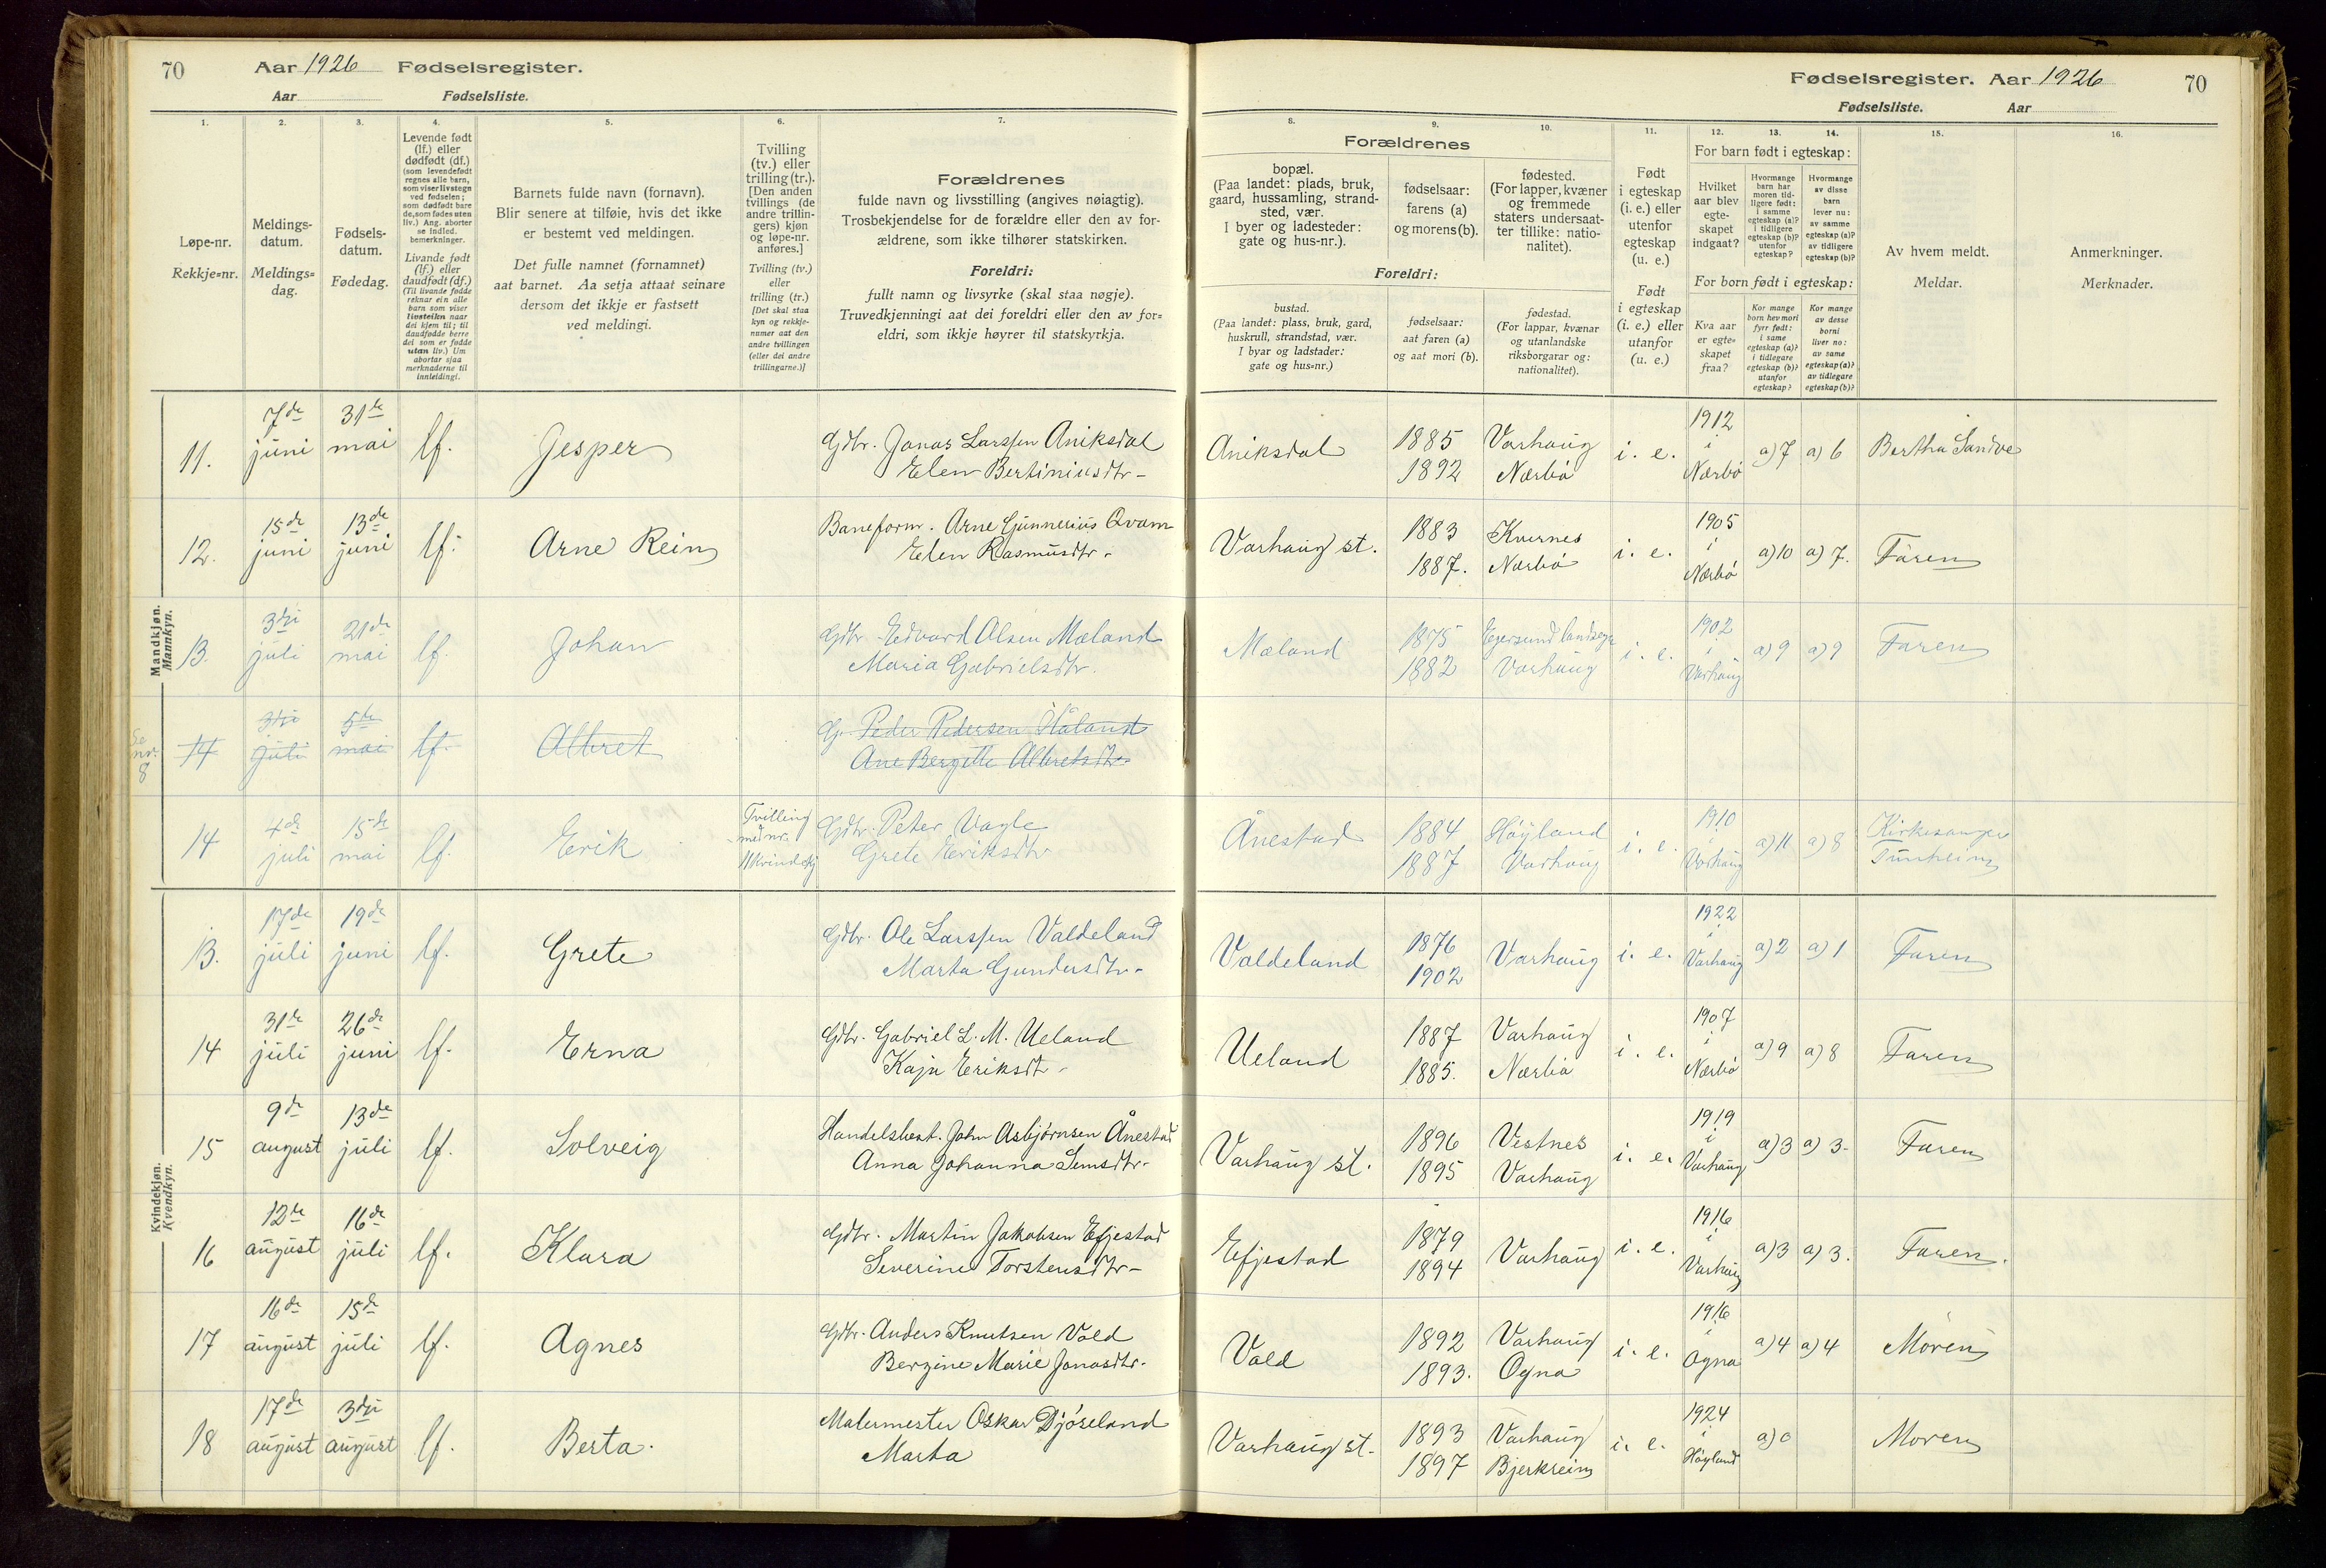 70 Aar 1926 Fødselsregister.
Aar Fødselsliste.
1. 2. 3. 4. 5. 6. 7.
Løpe-nr.
Rekkje=nr.
Meldings-
datum.
Meldings=
dag.
Fødsels-
datum.
Fødedag.
Levende født
(lf.) eller
dødfødt (df.)
(som levendefødt
regnes alle barn,
som viser livstegn
ved fødselen;
som dødfødt bare
de, som fødes uten
liv.) Ang. aborter
se indled.
bemerkninger.
Livande født
(lf.) eller
daudfødt (df.)
(Til livande fødde
reknar ein alle
barn som viser
livsteikn naar
dei kjem til; til
daudfødde berre
dei som er fødde
utan liv.) Um
abortar sjaa
merknaderne til
innleidingi.
Barnets fulde navn (fornavn).
Blir senere at tilføie, hvis det ikke
er bestemt ved meldingen.
Det fulle namnet (fornamnet)
aat barnet. Aa setja attaat seinare
dersom det ikkje er fastsett
ved meldingi.
Tvilling
(tv.) eller
trilling (tr.).
[Den anden
tvillings (de
andre trillin-
gers) kjøn
og løpe-nr.
anføres.]
Tvilling (tv.)
eller
trilling (tr.)
[Det skal staa
kyn og rekkje-
numer aat den
andre tvillingen
(eller dei andre
trillingarne.)]
Forældrenes
fulde navn og livsstilling (angives nøiagtig).
Trosbekjendelse for de forældre eller den av for-
ældrene, som ikke tilhører statskirken.
Foreldri:
fullt namn og livsyrke (skal staa nøgje).
Truvedkjenningi aat dei foreldri eller den av for=
eldri, som ikkje høyrer til statskyrkja.
Mandkjøn.
Mannkyn.
11. 7de juni 31te mai lf. Jesper Gdbr. Jonas Larssen Aniksdal
Elen Bertiniusdtr -
12. 15de juni 13de juni lf. Arne Rein Baneform. Arne Gunnerius Qvam
Elen Rasmusdtr -
13. 3dji juli 21de mai lf. Johan Gdbr. Edvard Olsen Mæland
Maria Gabrielsdtr.
Se nr. 8
14 3dji juli 5te mai lf. Albret G. Peder Pedersen Håland
Ane Bergitte Albretsdtr.
14 4de juli 15de mai lf. Erik Tvilling med nr. 11 Kvindekj Gdbr. Peter Vagle
Grete Eriksdtr
Kvindekjøn.
Kvendkyn.
13. 17de juli 19de juni lf. Grete Gdbr. Ole Larssen Valdeland
Marta Gundersdtr -
14 31te juli 26de juni lf. Erna Gdbr. Gabriel L. M. Ueland
Kaja Eriksdt -
15 9de august 13de juli lf. Solveig Handelsbest. John Asbjørnsen Ånestad
Anna Johanna Semsdtr -
16 12te august 16de juli lf. Klara Gdbr. Martin Jakobsen Efjestad
Severine Torstensdtr -
17 16de august 15de juli lf. Agnes Gdbr. Anders Knutsen Vold
Bergine Marie Jonasdtr.
18 17de august 3dji august lf. Berta. Malermester Oskar Djøseland
Marta
Fødselsregister. Aar 1926 70
Fødselsliste. Aar
8. 9. 10. 11. 12. 13. 14. 15. 16.
Forældrenes
bopæl.
(Paa landet: plads, bruk,
gaard, hussamling, strand-
sted, vær.
I byer og ladesteder:
gate og hus-nr.).
fødselsaar:
farens (a)
og morens (b).
fødested.
(For lapper, kvæner
og fremmede
staters undersaat-
ter tillike: natio-
nalitet).
Foreldri:
bustad.
(Paa landet: plass, bruk, gard,
huskrull, strandstad, vær.
I byar og ladstader:
gate og hus=nr.)
fødselsaar:
aat faren (a)
og aat mori (b).
fødestad.
(For lappar, kvænar
og utanlandske
riksborgarar og:
nationalitet).
Født
i egteskap
(i. e.) eller
utenfor
egteskap
(u. e.)
Født
i egteskap
(i. e.) eller
utanfor
(u. e.)
For barn født i egteskap:
Hvilket
aar blev
egte-
skapet
indgaat?
Hvormange
barn har
moren tid-
ligere født:
i samme
egteskap (a)?
i tidligere
egteskap (b)?
utenfor
egteskap?
Hvormange
av disse
barn
lever nu:
av samme
egteskap (a)?
av tidligere
egteskap (b)?
For born født i egteskap:
Kva aar
er egte=
skapet
fraa?
Kor mange
born hev mori
fyrr født:
i same
egteskap (a)?
i tidlegare
egteskap (b)?
utanfor
egteskap?
Kor mange
av desse
borni
liver no:
av same
egteskap (a)?
av tidlegare
egteskap (b)?
Av hvem meldt.
Meldar.
Anmerkninger.
Merknader.
Aniksdal 1885 1892 Varhaug Nærbø i. e. 1912 i Nærbø a) 7 a) 6 Bertha Sandve
Varhaug st. 1883 1887. Kvernes Nærbø i. e. 1905 i Nærbø a) 10 a) 7. Faren
Mæland 1875 1882 Egersund landsogn Varhaug i. e. 1902 i Varhaug a) 9 a) 9 Faren
Ånestad 1884 1887 Høyland Varhaug i. e. 1910 i Varhaug a) 11 a) 8 Kirkesanger Tunheim
Valdeland 1876 1902 Varhaug i. e. 1922 i Varhaug a) 2 a) 1 Faren
Ueland 1887 1885. Varhaug Nærbø i. e. 1907 i Nærbø a) 9 a) 8 Faren
Varhaug st. 1896 1895 Vestnes Varhaug i. e. 1919 i Varhaug a) 3 a) 3. Faren
Efjestad 1879 1894 Varhaug i. e. 1916 i Varhaug a) 3 a) 3. Faren.
Vold 1892 1893. Varhaug Ogna i. e. 1916 i Ogna a) 4 a) 4 Moren
Varhaug st. 1893 1897 Varhaug Bjerkreim i. e. 1924 i Høyland a) 0 Moren